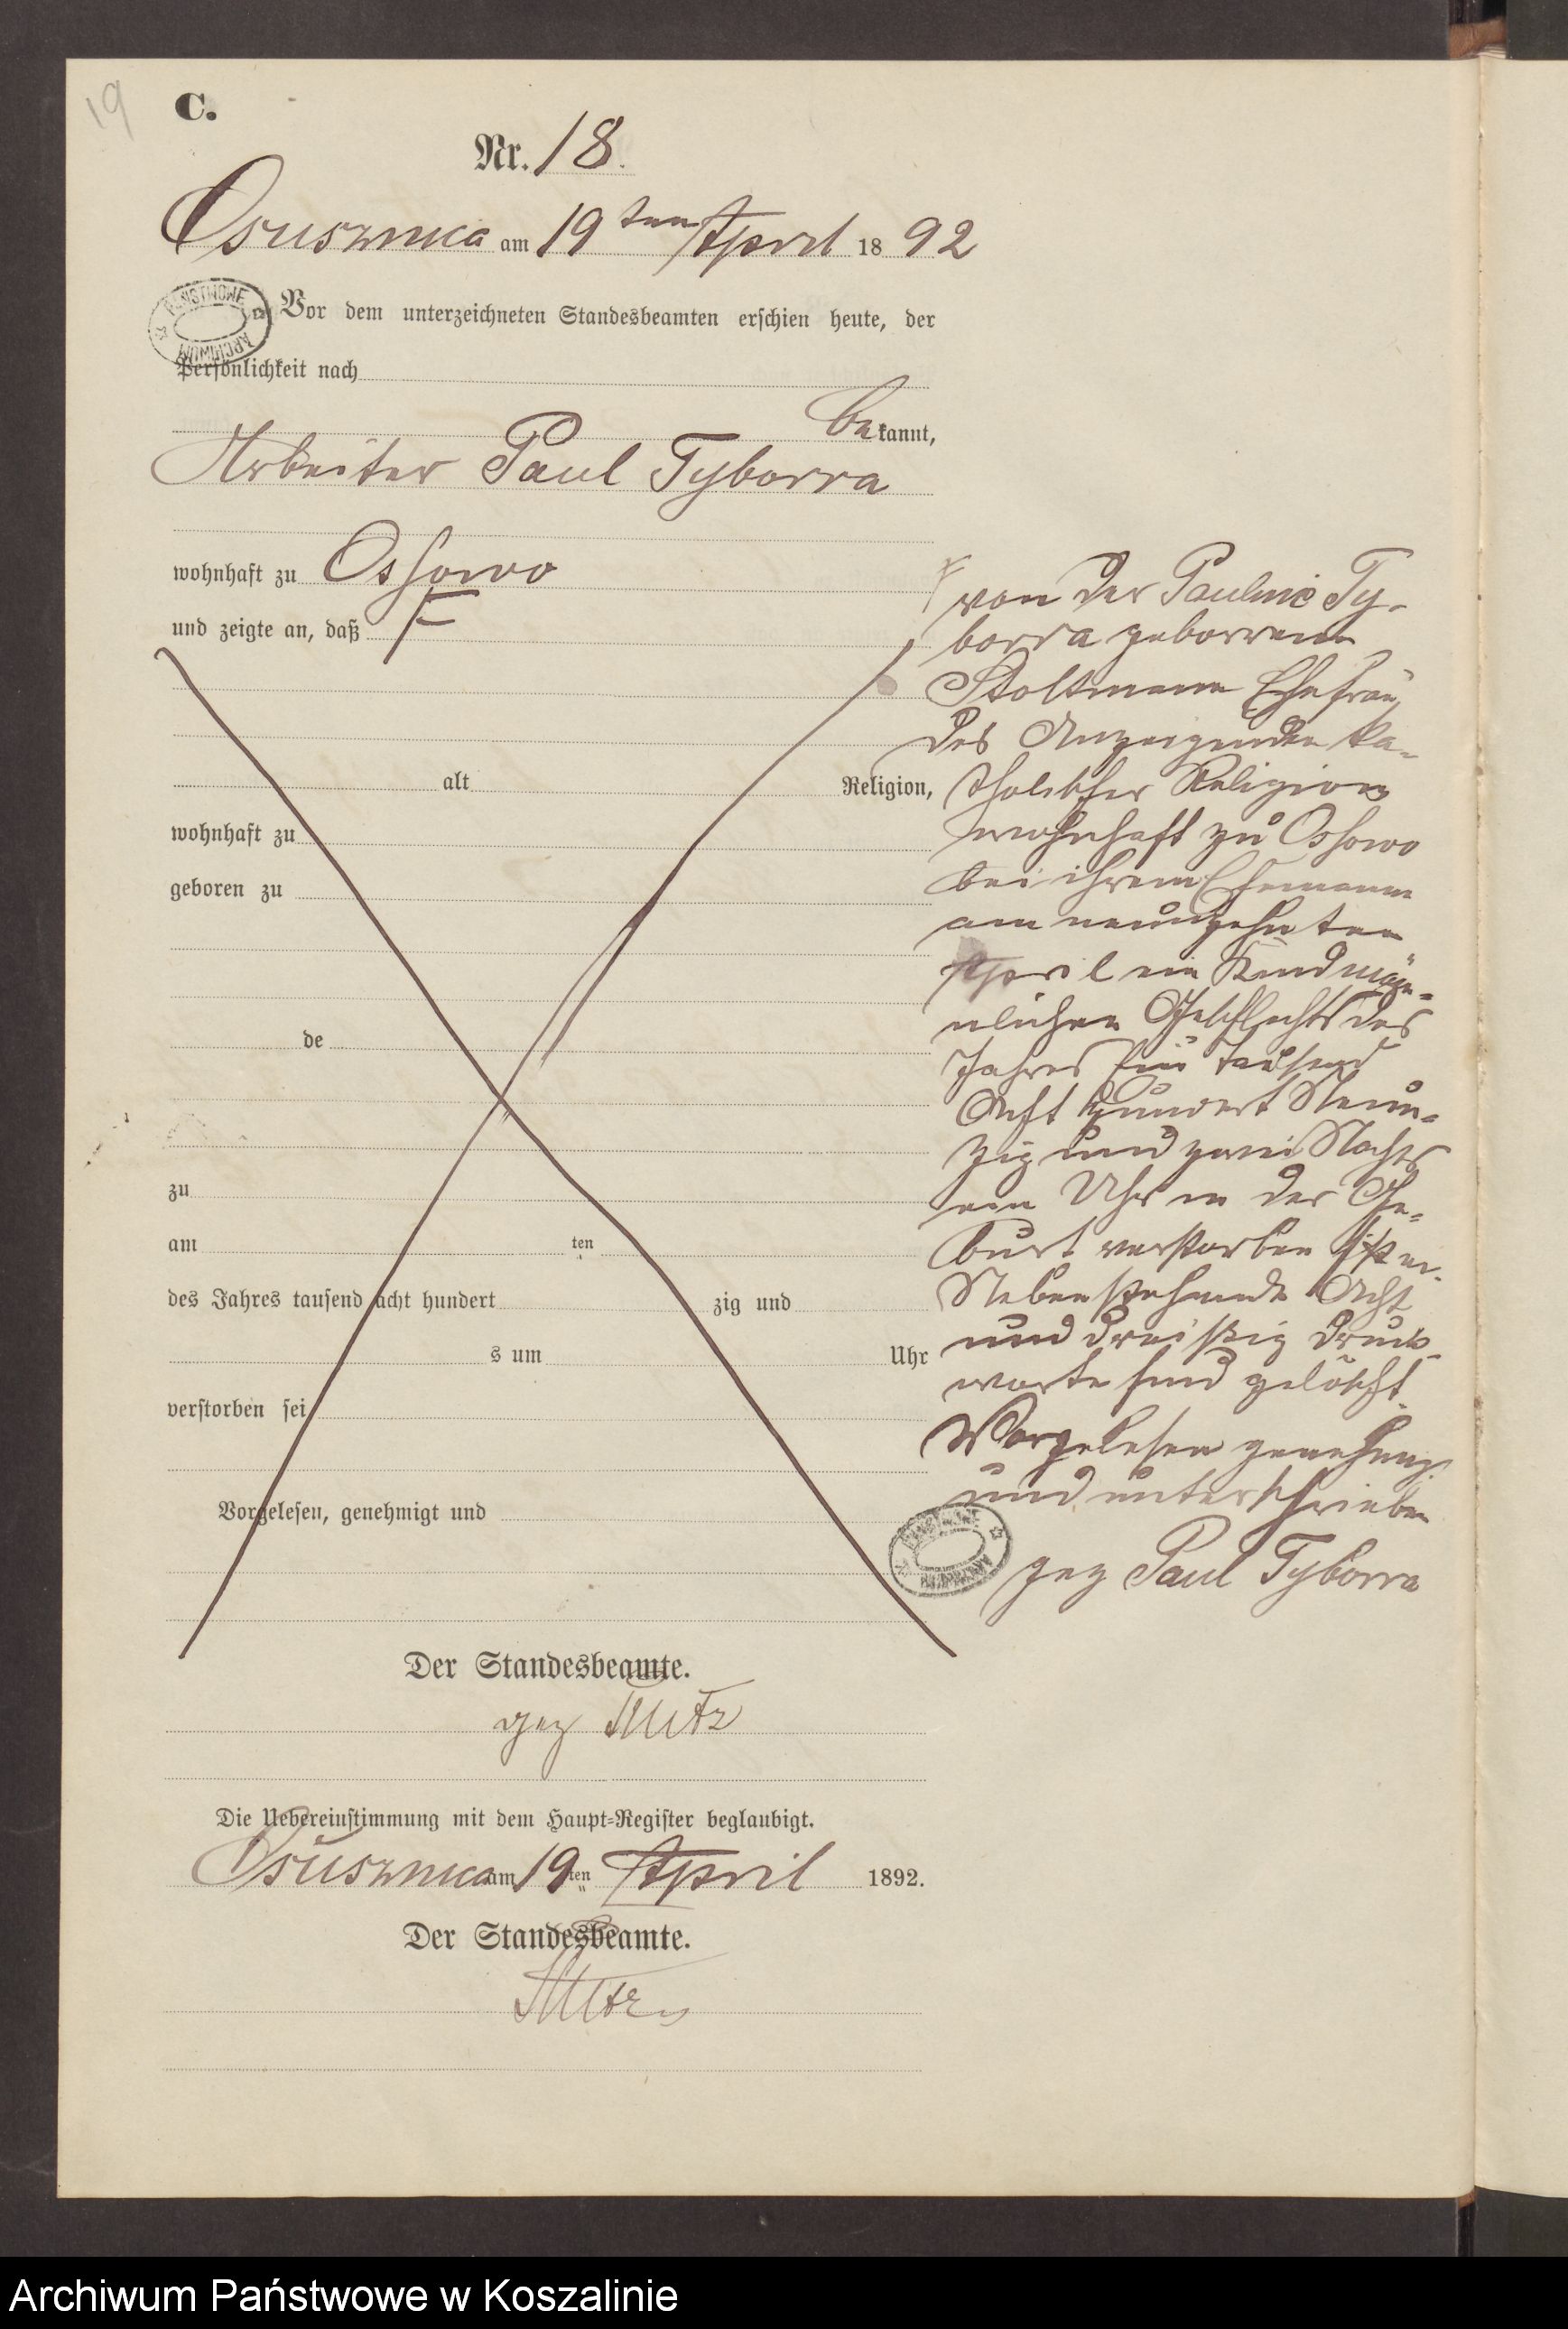 19
C.
Nr. 18.
Osusznica am 19ten April 1892
PAŃSTWOWE ARCHIWUM
Vor dem unterzeichneten Standesbeamten erschien heute, der
Persönlichkeit nach
bekannt,
Arbeiter Paul Tyborra
wohnhaft zu Ossowo
und zeigte an, daß
alt Religion,
wohnhaft zu
geboren zu
de
zu
am ten
des Jahres tausend acht hundert zig und
s um Uhr
verstorben sei
Vorgelesen, genehmigt und
von der Pauline Ty-
borra geborrene
Stoltmann Ehefrau
des Anzeigenden ka-
tholischer Religion
wohnhaft zu Ossowo
bei ihrem Ehemann
am neunzehnten
April ein Kind män-
nlichen Geschlechts des
Jahres Ein tausend
Acht hundert Neun-
zig und zwei Nachts
ein Uhr in der Ge-
burt verstorben ist
Nebenstehende Acht
und dreißig Druck-
worte sind gelöscht.
Vorgelesen genehmigt
und unterschrieben
gez Paul Tyborra
PAŃSTWOWE ARCHIWUM
Der Standesbeamte.
gez
Die Uebereinstimmung mit dem Haupt-Register beglaubigt.
Osusznica am 19ten April 1892.
Der Standesbeamte.
Archiwum Państwowe w Koszalinie